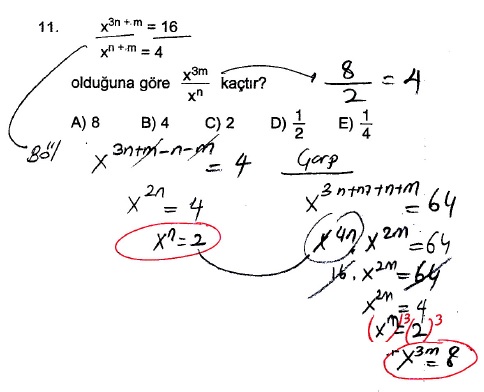 11. x^{3n+m} = 16
x^{n+m} = 4
olduğuna göre \frac{x^{3m}}{x^n} kaçtır? \frac{8}{2} = 4
A) 8 B) 4 C) 2 D) \frac{1}{2} E) \frac{1}{4}
Böl x^{3n+m-n-m} = 4
x^{2n} = 4
x^n = 2
Çarp
x^{3n+m+n+m} = 64
x^{4n} . x^{2m} = 64
16 . x^{2m} = 64
x^{2m} = 4
(x^m)^3 = (2)^3
x^{3m} = 8